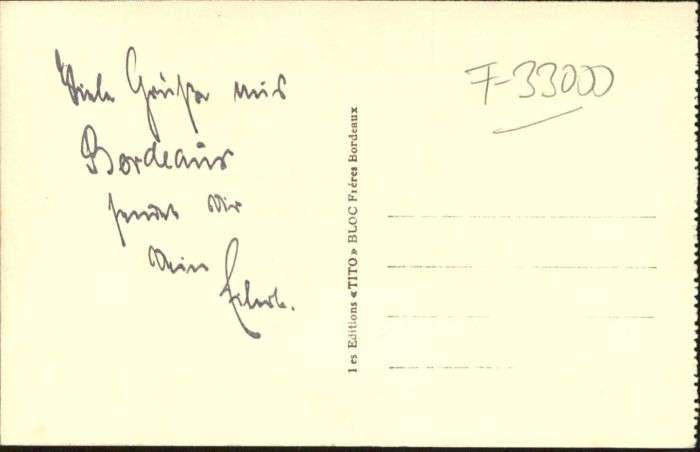 Viele Grüße aus
Bordeaux
sendet Dir
Dein
F-33000
Les Editions «TITO» BLOC Fréres Bordeaux